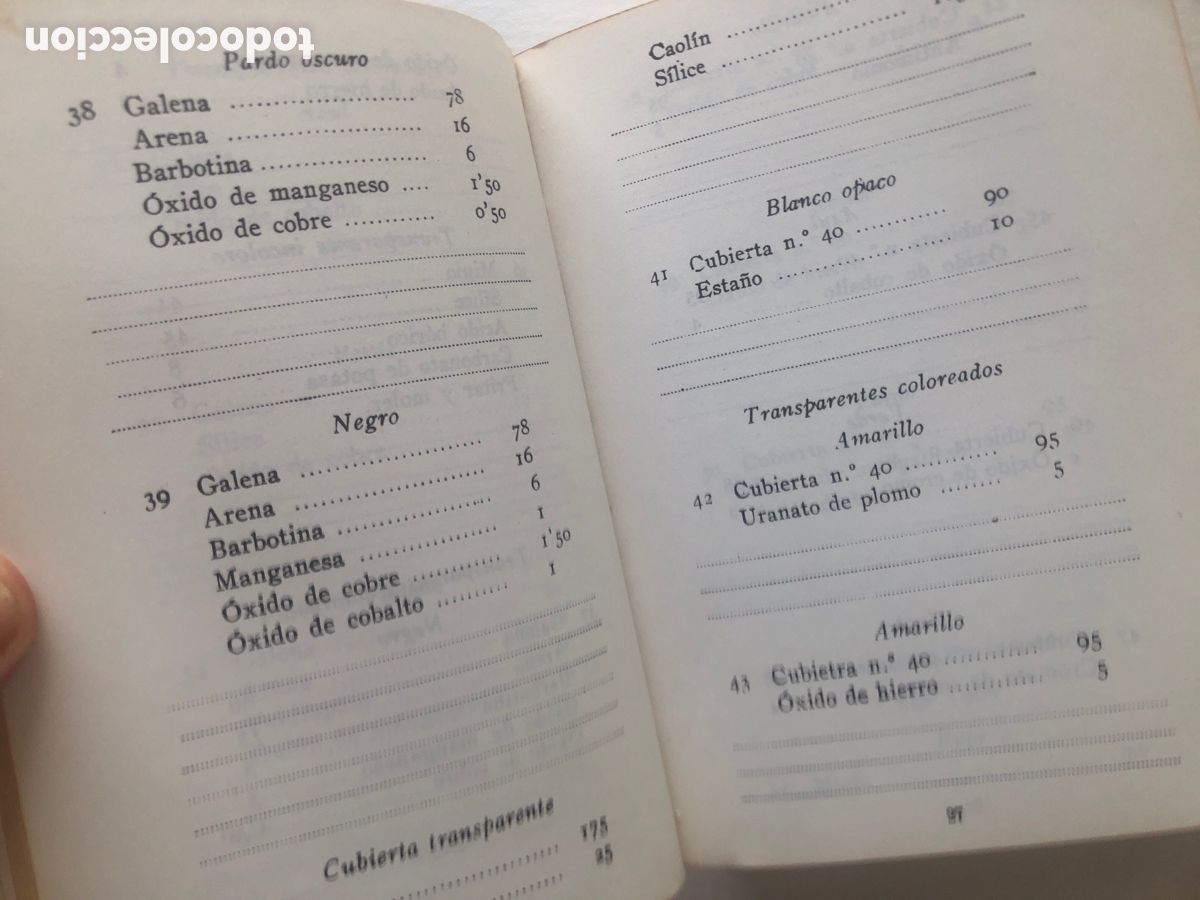 todocoleccion
Pardo oscuro
38 Galena .................... 78
Arena ........................ 16
Barbotina .................... 6
Óxido de manganeso .... 1'50
Óxido de cobre ........... 0'50
Negro
39 Galena .................... 78
Arena ........................ 16
Barbotina .................... 6
Manganesa .................. 1
Óxido de cobre ........... 1'50
Óxido de cobalto .......... 1
Cubierta transparente
175
25
Caolín
Sílice
Blanco opaco
41 Cubierta n.º 40 .......... 90
Estaño ........................ 10
Transparentes coloreados
Amarillo
42 Cubierta n.º 40 ............ 95
Uranato de plomo ........ 5
Amarillo
43 Cubietra n.º 40 ............ 95
Óxido de hierro ............ 5